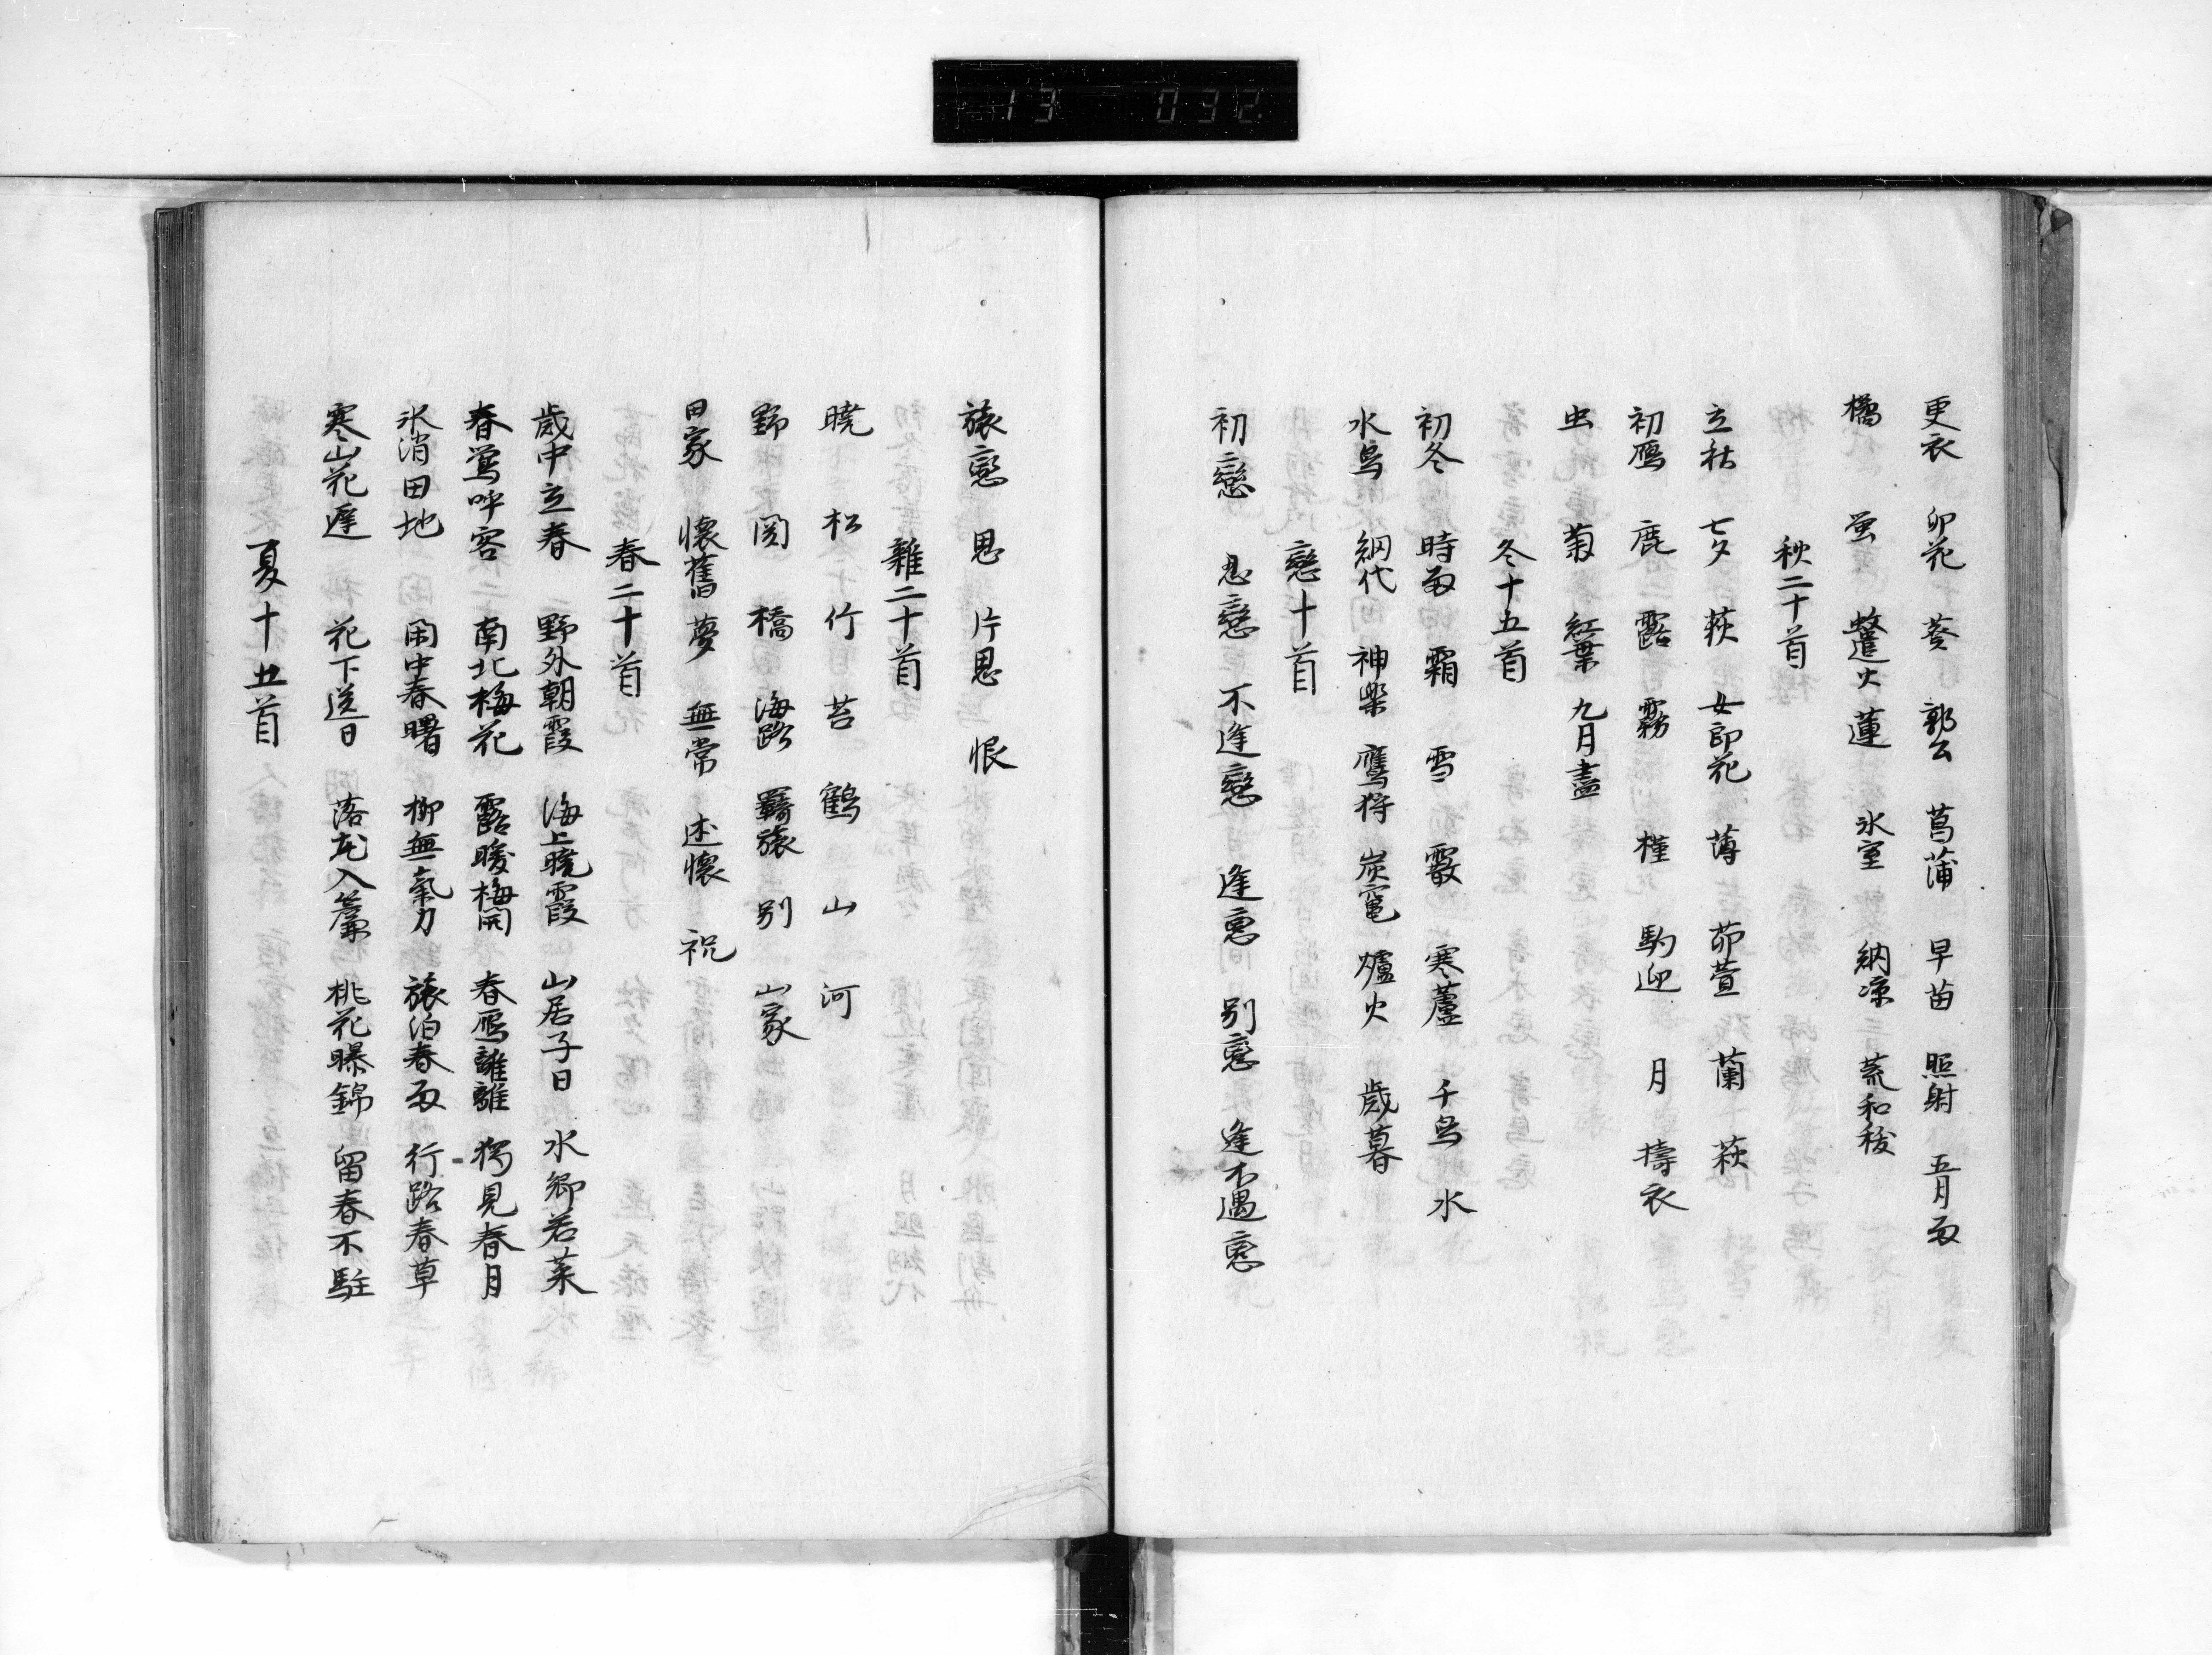 13 032
更衣 卯花 葵 郭公 菖蒲 早苗 照射 五月雨
橘 蛍 蚊遣火 蓮 氷室 納凉 荒和祓
秋二十首
立秋 七夕 萩 女郎花 薄 苅萱 蘭 荻
初鴈 鹿 露 霧 槿 駒迎 月 擣衣
虫 菊 紅葉 九月盡
冬十五首
初冬 時雨 霜 雪 霰 寒蘆 千鳥 氷
水鳥 網代 神樂 鷹狩 炭竈 爐火 歳暮
戀十首
初戀 忍戀 不逢戀 逢戀 別戀 逢不遇戀
旅戀 思 片思 恨
雜二十首
曉 松 竹 苔 鶴 山 河
野 関 橋 海路 羈旅 別 山家
田家 懷舊 夢 無常 述懷 祝
春二十首
歳中立春 野外朝霞 海上曉霞 山居子日 水鄉若菜
春鶯呼客 南北梅花 露暖梅開 春鴈離離 獨見春月
氷消田地 閑中春曙 柳無氣力 旅泊春雨 行路春草
寒山花遲 花下送日 落花入簾 桃花曝錦 留春不駐
夏十五首